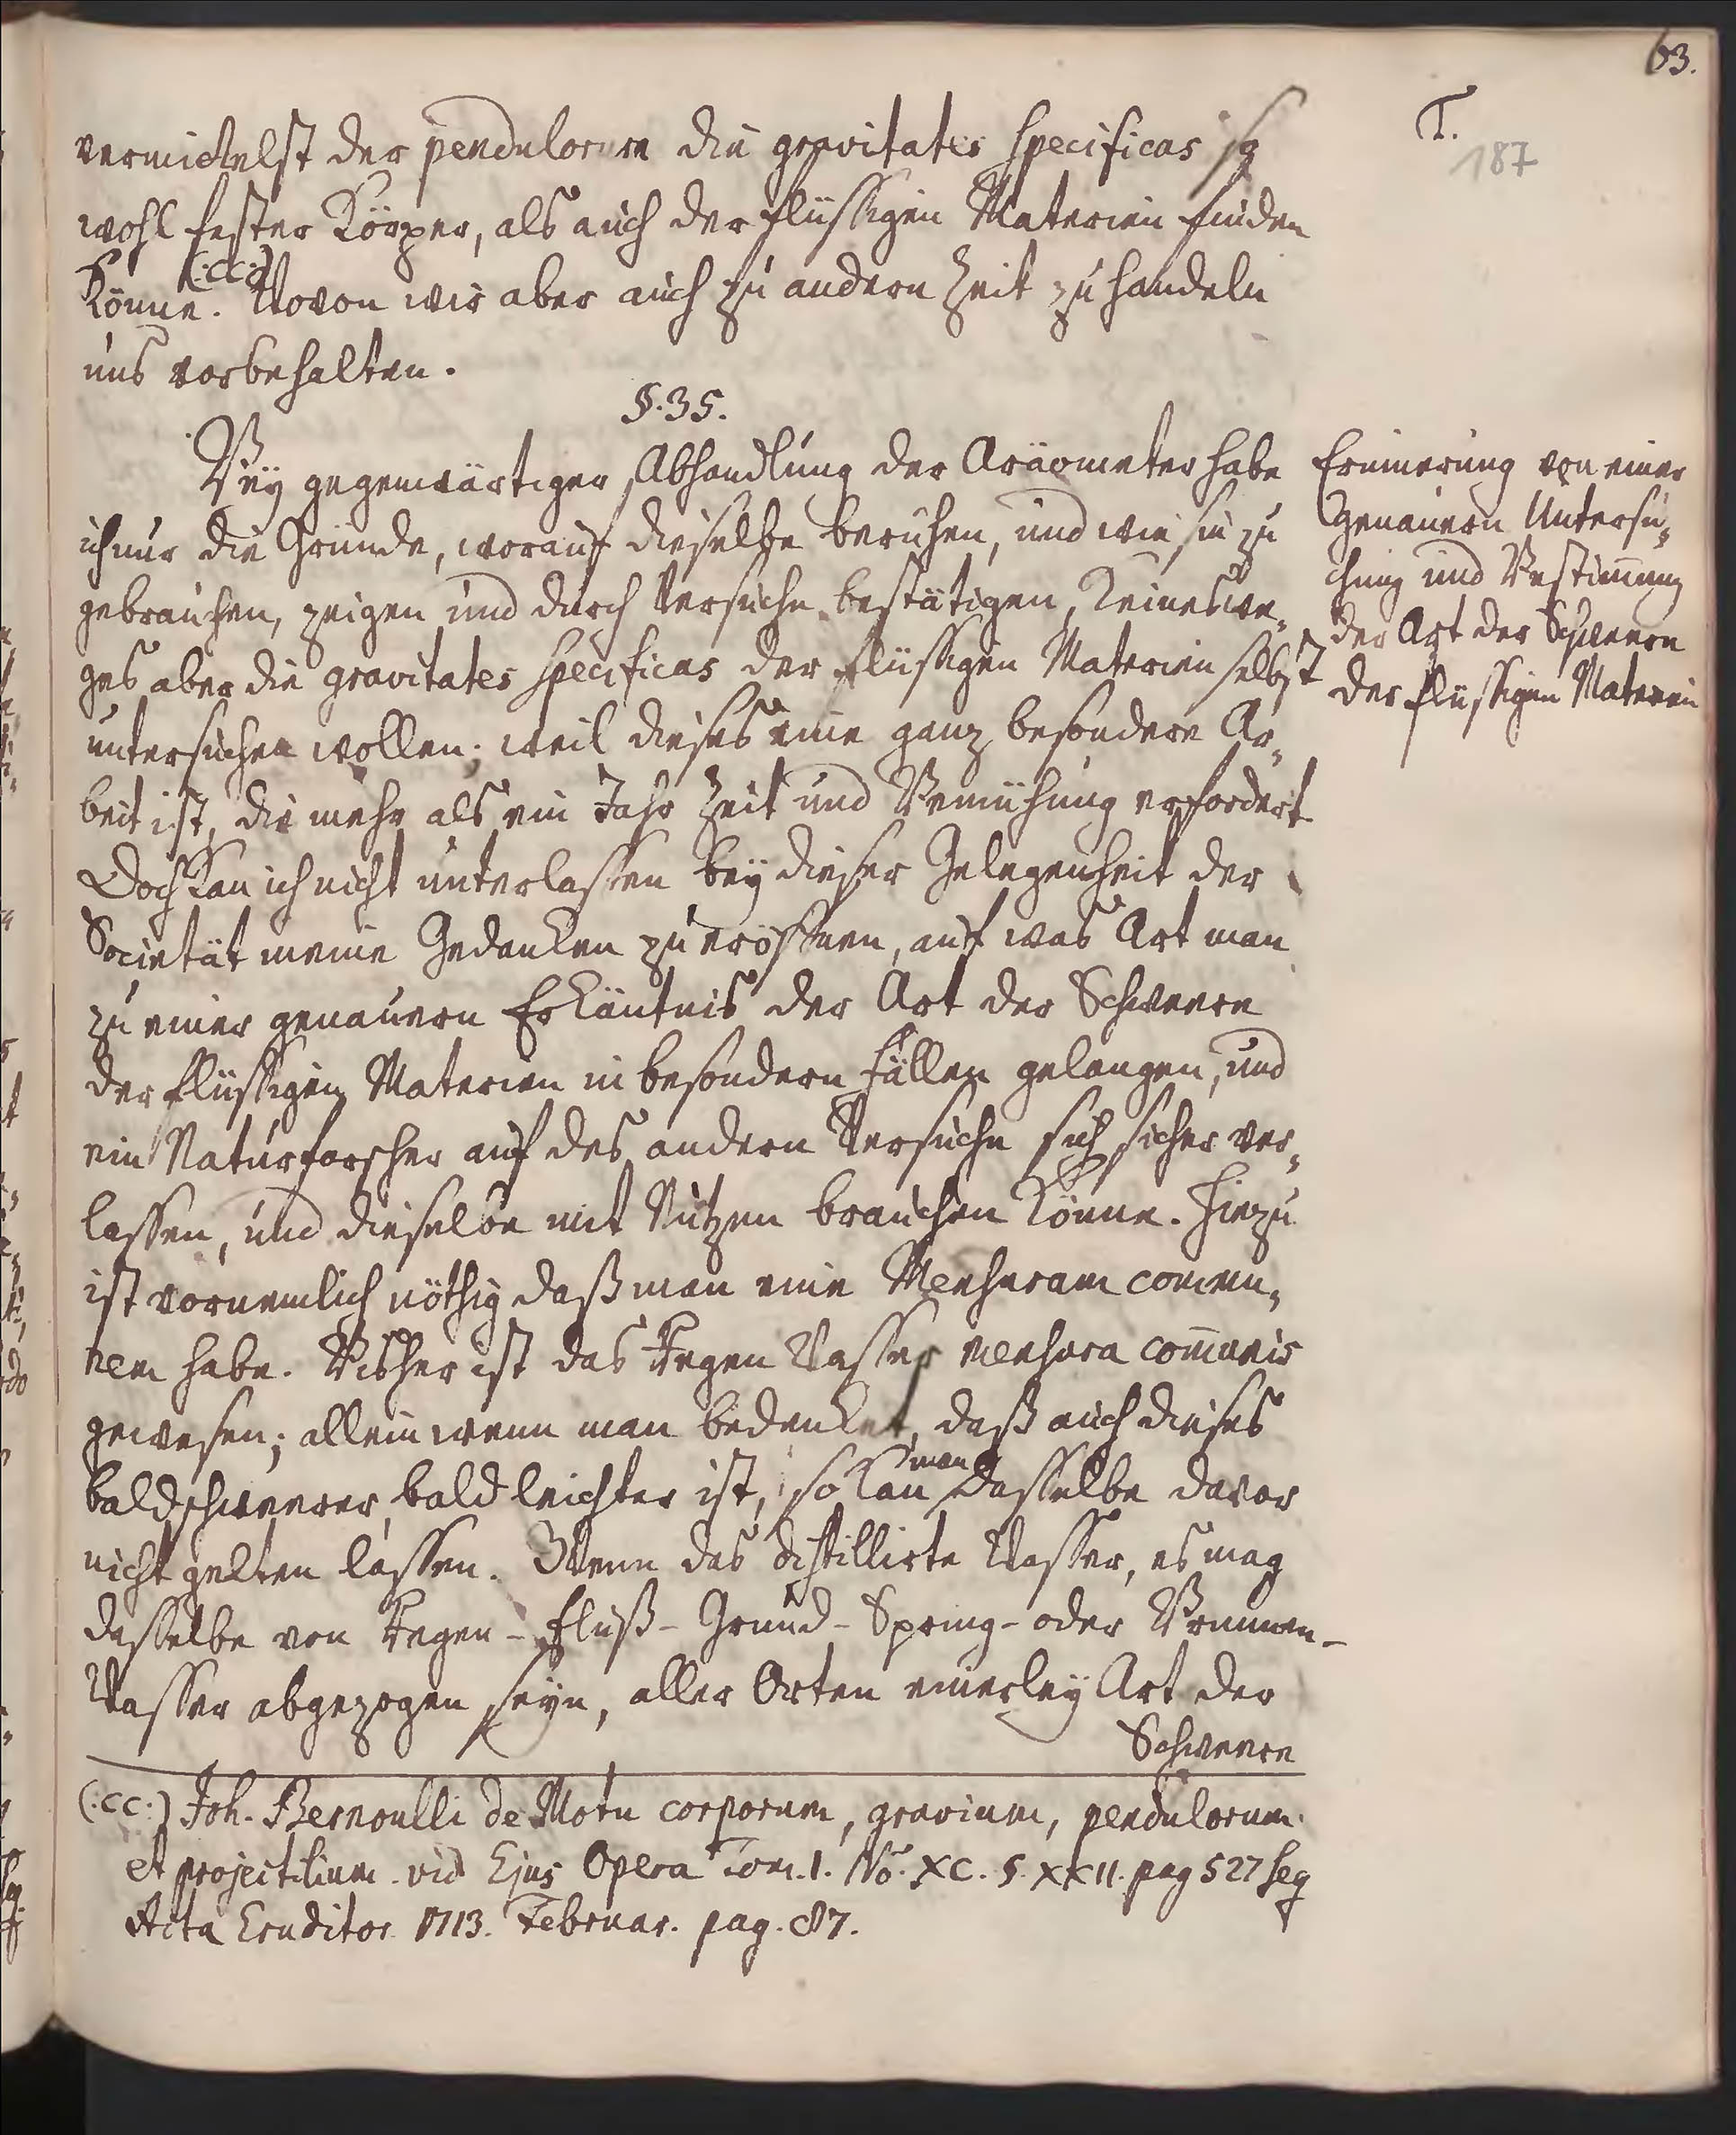 63.
T.
187
vermittelst der pendulorum die gravitates specificas so
wohl fester Körper, als auch der flüssigen Materien finden
könne. (:cc:) Wovon wir aber auch zu andern Zeit zu handeln
uns vorbehalten.
§. 35.
Bey gegenwärtiger Abhandlung der Aräometer habe
ich nur die Gründe, worauf dieselbe beruhen, und wie sie zu
gebrauchen, zeigen und durch Versuche bestätigen, keineswe„
ges aber die gravitates specificas der flüssigen Materien selbst
untersuchen wollen; weil dieses eine ganz besondere Ar„
beit ist, die mehr als ein Jahr Zeit und Bemühung erfordert
Doch kan ich nicht unterlassen bey dieser Gelegenheit der
Societät meine Gedanken zu eröffnen, auf was Art man
zu einer genauern Erkäntnis der Art der Schweere
der flüssigen Materien in besondern Fällen gelangen, und
ein Naturforscher auf des andern Versuche sich sicher ver„
lassen, und dieselbe mit Nutzen brauchen könne. Hiezu
ist vornemlich nöthig daß man eine Mensuram commu„
nem habe. Bisher ist das Regen Wasser mensura com̄unis
gewesen; allein wenn man bedenket, daß auch dieses
bald schweerer, bald leichter ist, so kan man dasselbe davor
nicht gelten lassen. Wenn das distillirte Wasser, es mag
dasselbe von Regen- Fluß- Grund- Spring- oder Brunnen-
Wasser abgezogen seyn, aller Orten einerley Art der
Schweere
Erinnerung von einer
genauern Untersu„
chung und Bestim̄ung
der Art der Schweere
der flüssigen Materien
(:cc:) Joh. Bernoulli de Motu corporum, gravium, pendulorum
et projectilium. vid Ejus Opera Tom. 1. No. XC. §. XXII. pag 527 seq
Acta Eruditor 1713. Februar. pag. 87.